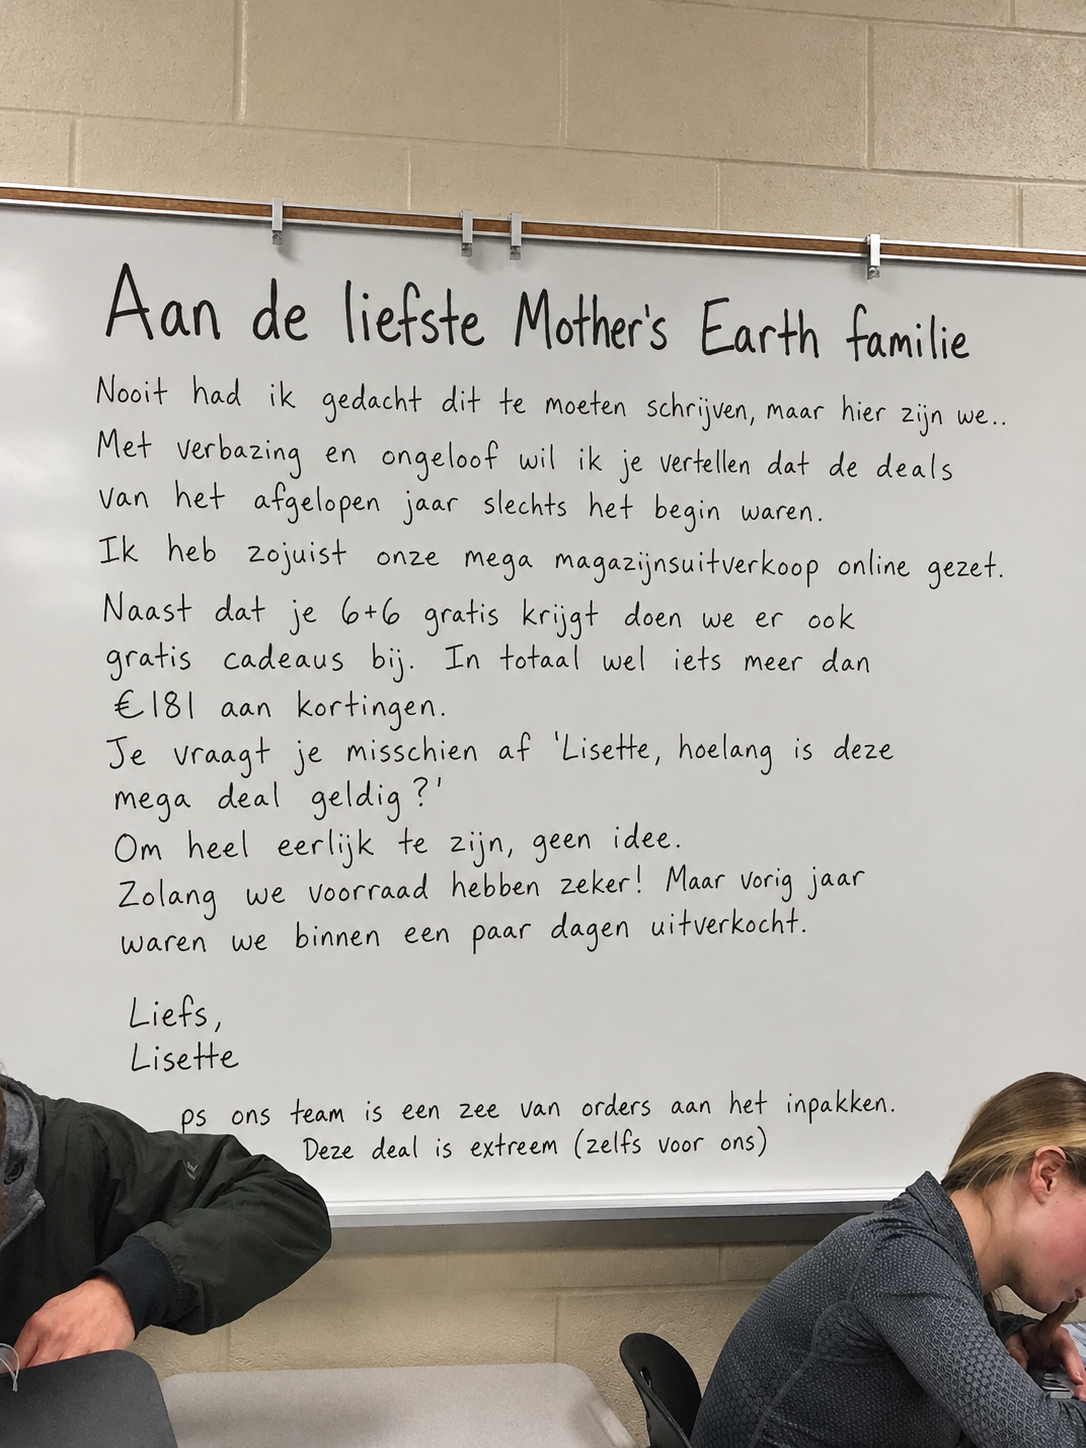 Aan de liefste Mother's Earth familie
Nooit had ik gedacht dit te moeten schrijven, maar hier zijn we..
Met verbazing en ongeloof wil ik je vertellen dat de deals
van het afgelopen jaar slechts het begin waren.
Ik heb zojuist onze mega magazijnsuitverkoop online gezet.
Naast dat je 6+6 gratis krijgt doen we er ook
gratis cadeaus bij. In totaal wel iets meer dan
€181 aan kortingen.
Je vraagt je misschien af 'Lisette, hoelang is deze
mega deal geldig?'
Om heel eerlijk te zijn, geen idee.
Zolang we voorraad hebben zeker! Maar vorig jaar
waren we binnen een paar dagen uitverkocht.
Liefs,
Lisette
ps ons team is een zee van orders aan het inpakken.
Deze deal is extreem (zelfs voor ons)